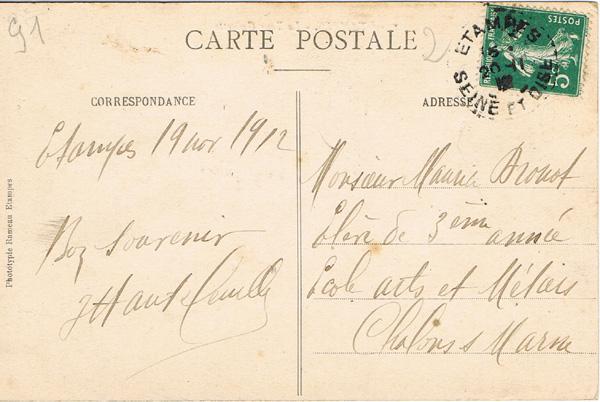 91
CARTE POSTALE
2
ETAMPES
SEINE ET OISE
POSTES
5
CORRESPONDANCE
ADRESSE
Etampes 19 nov 1912
Boy souvenir
Monsieur Maurice
Elève de 3ème année
Ecole arts et Métiers
Chalons s Marne
Phototypie Rameau Etampes